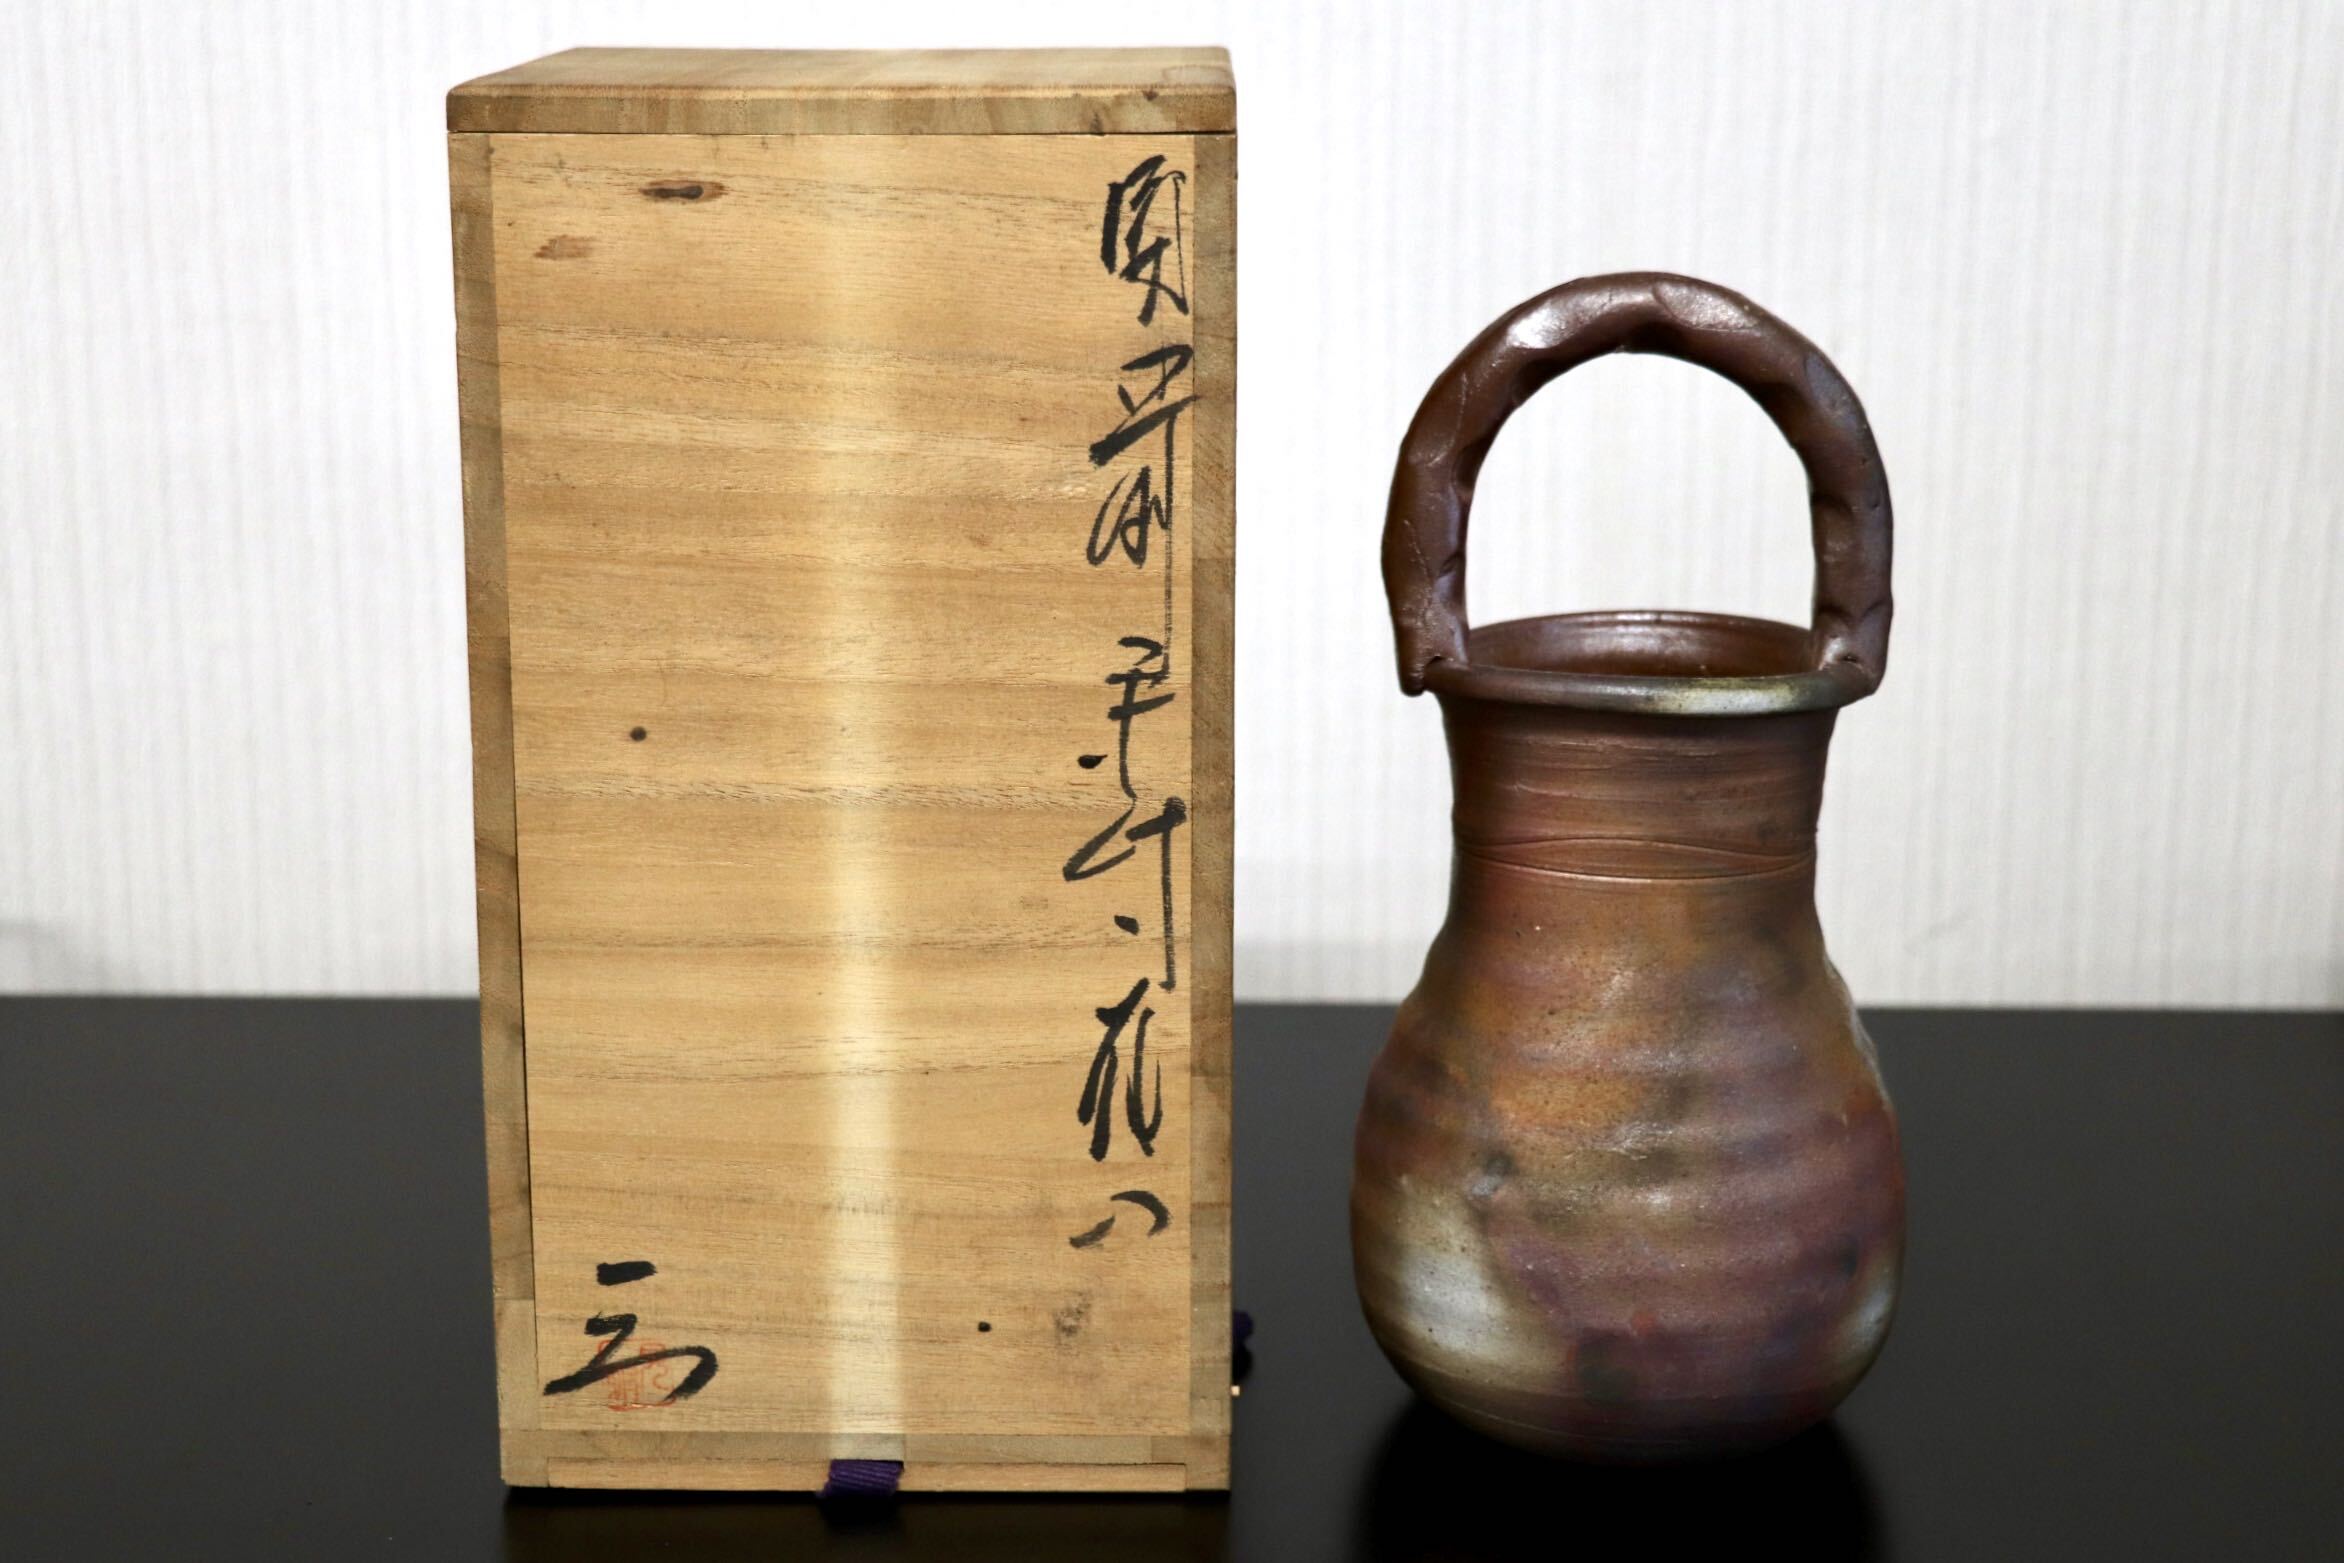 備前手付花入